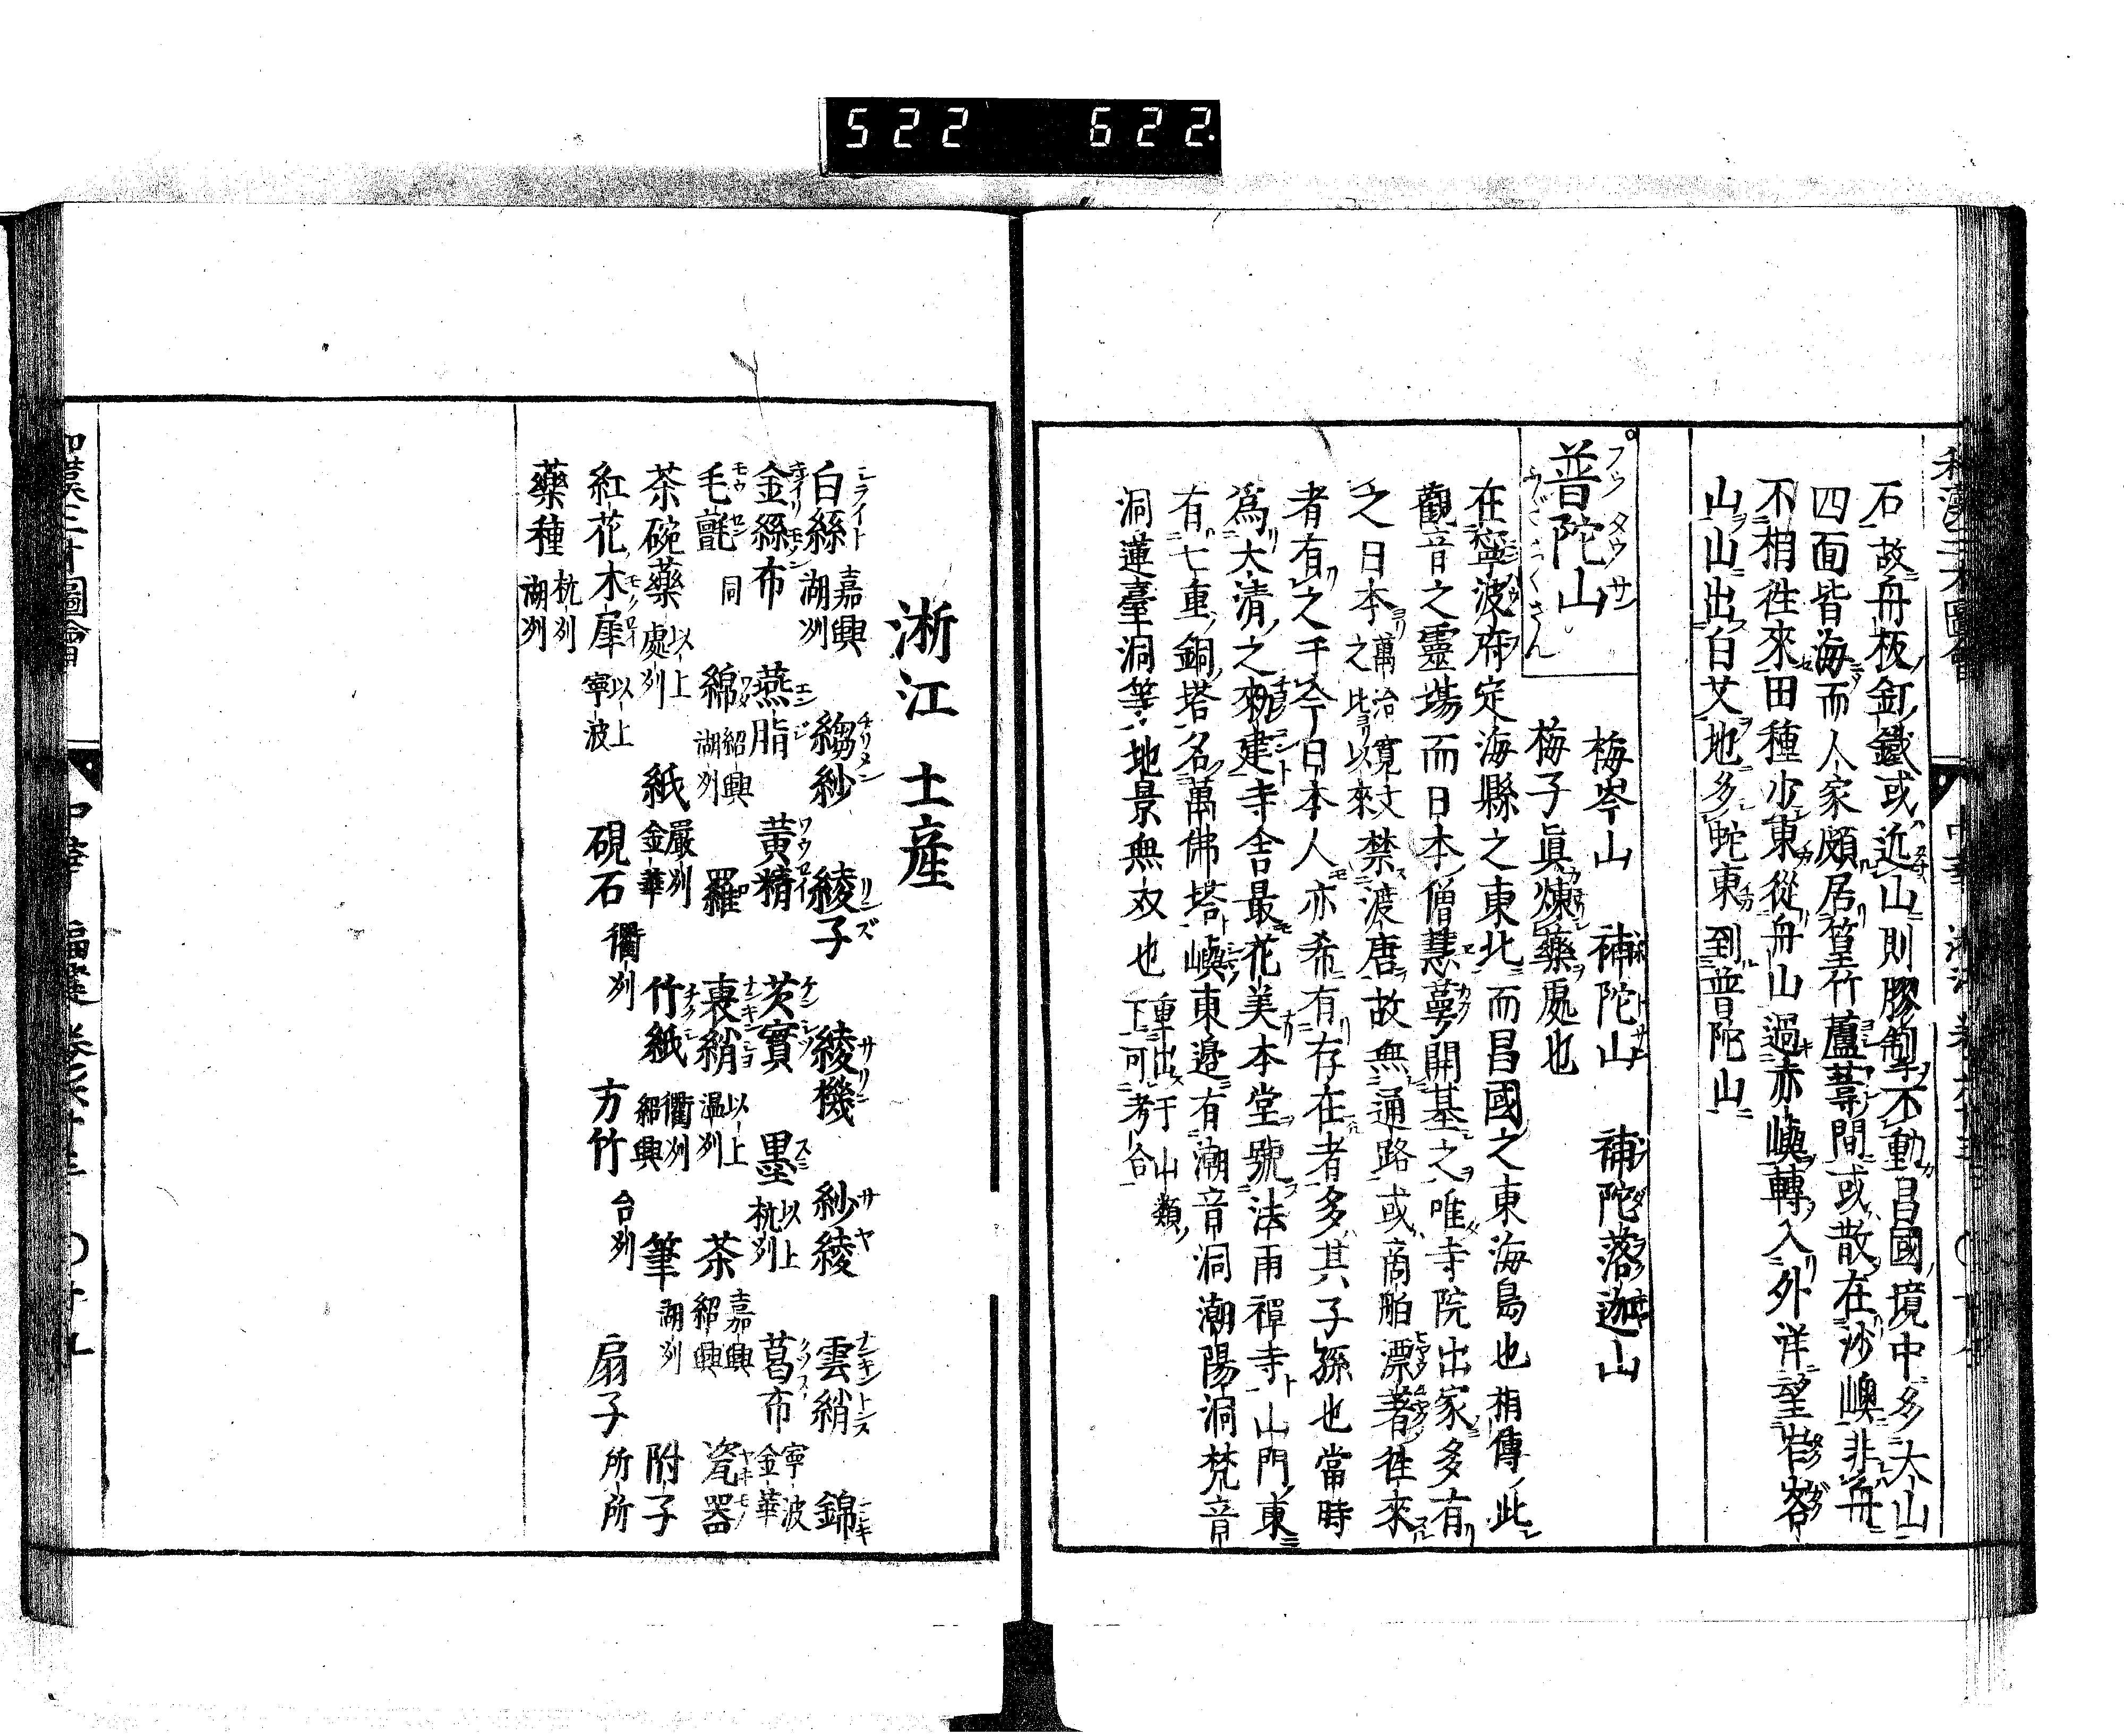 522 622
石故舟板釘鐵或近山則膠掣不動昌國境中多大山
四面皆海而人家頗居篁竹蘆葦間或散在沙嶼非舟
不相往來田種少東從舟山過赤嶼轉入外洋望岞㟯
山山出白艾地多蛇東到普陀山
普陀山
フウタウサン
ふださつくさん
梅岑山 補陀山 補陀落迦山
梅子眞煉藥處也
在寧波府定海縣之東北而昌國之東海島也相傳此
觀音之靈場而日本僧慧蕚開基之唯寺院出家多有
之日本萬治寛文之比以來禁渡唐故無通路或商舶漂著往來
者有之于今日本人亦希有存在者多其子孫也當時
爲大清之勅建寺舎最花美本堂號法雨禪寺山門東
有七重銅塔名萬佛塔嶼東邉有潮音洞潮陽洞梵音
洞蓮臺洞等地景無双也重出于山類下可考合
淅江土産
白絲 嘉興湖州 縐紗 綾子 綾機 紗綾 雲綃 錦
金絲布 燕脂 黄精 芡實 墨 以上杭州 葛布 寧波金華
毛氈 同 綿 紹興湖州 羅 裏綃 以上温州 茶 嘉興紹興 瓷器
茶碗藥 以上處州 紙 嚴州金華 竹紙 衢州紹興 筆 湖州 附子
紅花 木犀 以上寧波 硯石 衢州 方竹 台州 扇子 所所
藥種 杭州湖州